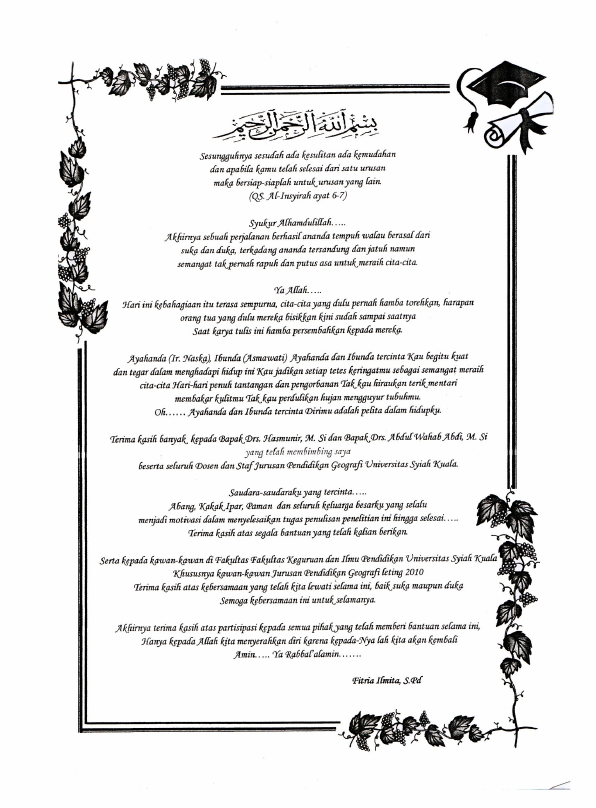 بسم الله الرحمن الرحيم
Sesungguhnya sesudah ada kesulitan ada kemudahan
dan apabila kamu telah selesai dari satu urusan
maka bersiap-siaplah untuk urusan yang lain.
(QS. Al-Insyirah ayat 6-7)
Syukur Alhamdulillah.....
Akhirnya sebuah perjalanan berhasil ananda tempuh walau berasal dari
suka dan duka, terkadang ananda tersandung dan jatuh namun
semangat tak pernah rapuh dan putus asa untuk meraih cita-cita.
Ya Allah.....
Hari ini kebahagiaan itu terasa sempurna, cita-cita yang dulu pernah hamba torehkan, harapan
orang tua yang dulu mereka bisikkan kini sudah sampai saatnya
Saat karya tulis ini hamba persembahkan kepada mereka.
Ayahanda (Ir. Naska), Ibunda (Asmawati) Ayahanda dan Ibunda tercinta Kau begitu kuat
dan tegar dalam menghadapi hidup ini Kau jadikan setiap tetes keringatmu sebagai semangat meraih
cita-cita Hari-hari penuh tantangan dan pengorbanan Tak kau hiraukan terik mentari
membakar kulitmu Tak kau perdulikan hujan mengguyur tubuhmu.
Oh...... Ayahanda dan Ibunda tercinta Dirimu adalah pelita dalam hidupku.
Terima kasih banyak kepada Bapak Drs. Hasmunir, M. Si dan Bapak Drs. Abdul Wahab Abdi, M. Si
yang telah membimbing saya
beserta seluruh Dosen dan Staf Jurusan Pendidikan Geografi Universitas Syiah Kuala.
Saudara-saudaraku yang tercinta.....
Abang, Kakak Ipar, Paman dan seluruh keluarga besarku yang selalu
menjadi motivasi dalam menyelesaikan tugas penulisan penelitian ini hingga selesai.....
Terima kasih atas segala bantuan yang telah kalian berikan.
Serta kepada kawan-kawan di Fakultas Fakultas Keguruan dan Ilmu Pendidikan Universitas Syiah Kuala
Khususnya kawan-kawan Jurusan Pendidikan Geografi leting 2010
Terima kasih atas kebersamaan yang telah kita lewati selama ini, baik suka maupun duka
Semoga kebersamaan ini untuk selamanya.
Akhirnya terima kasih atas partisipasi kepada semua pihak yang telah memberi bantuan selama ini,
Hanya kepada Allah kita menyerahkan diri karena kepada-Nya lah kita akan kembali
Amin..... Ya Rabbal'alamin.......
Fitria Ilmita, S.Pd